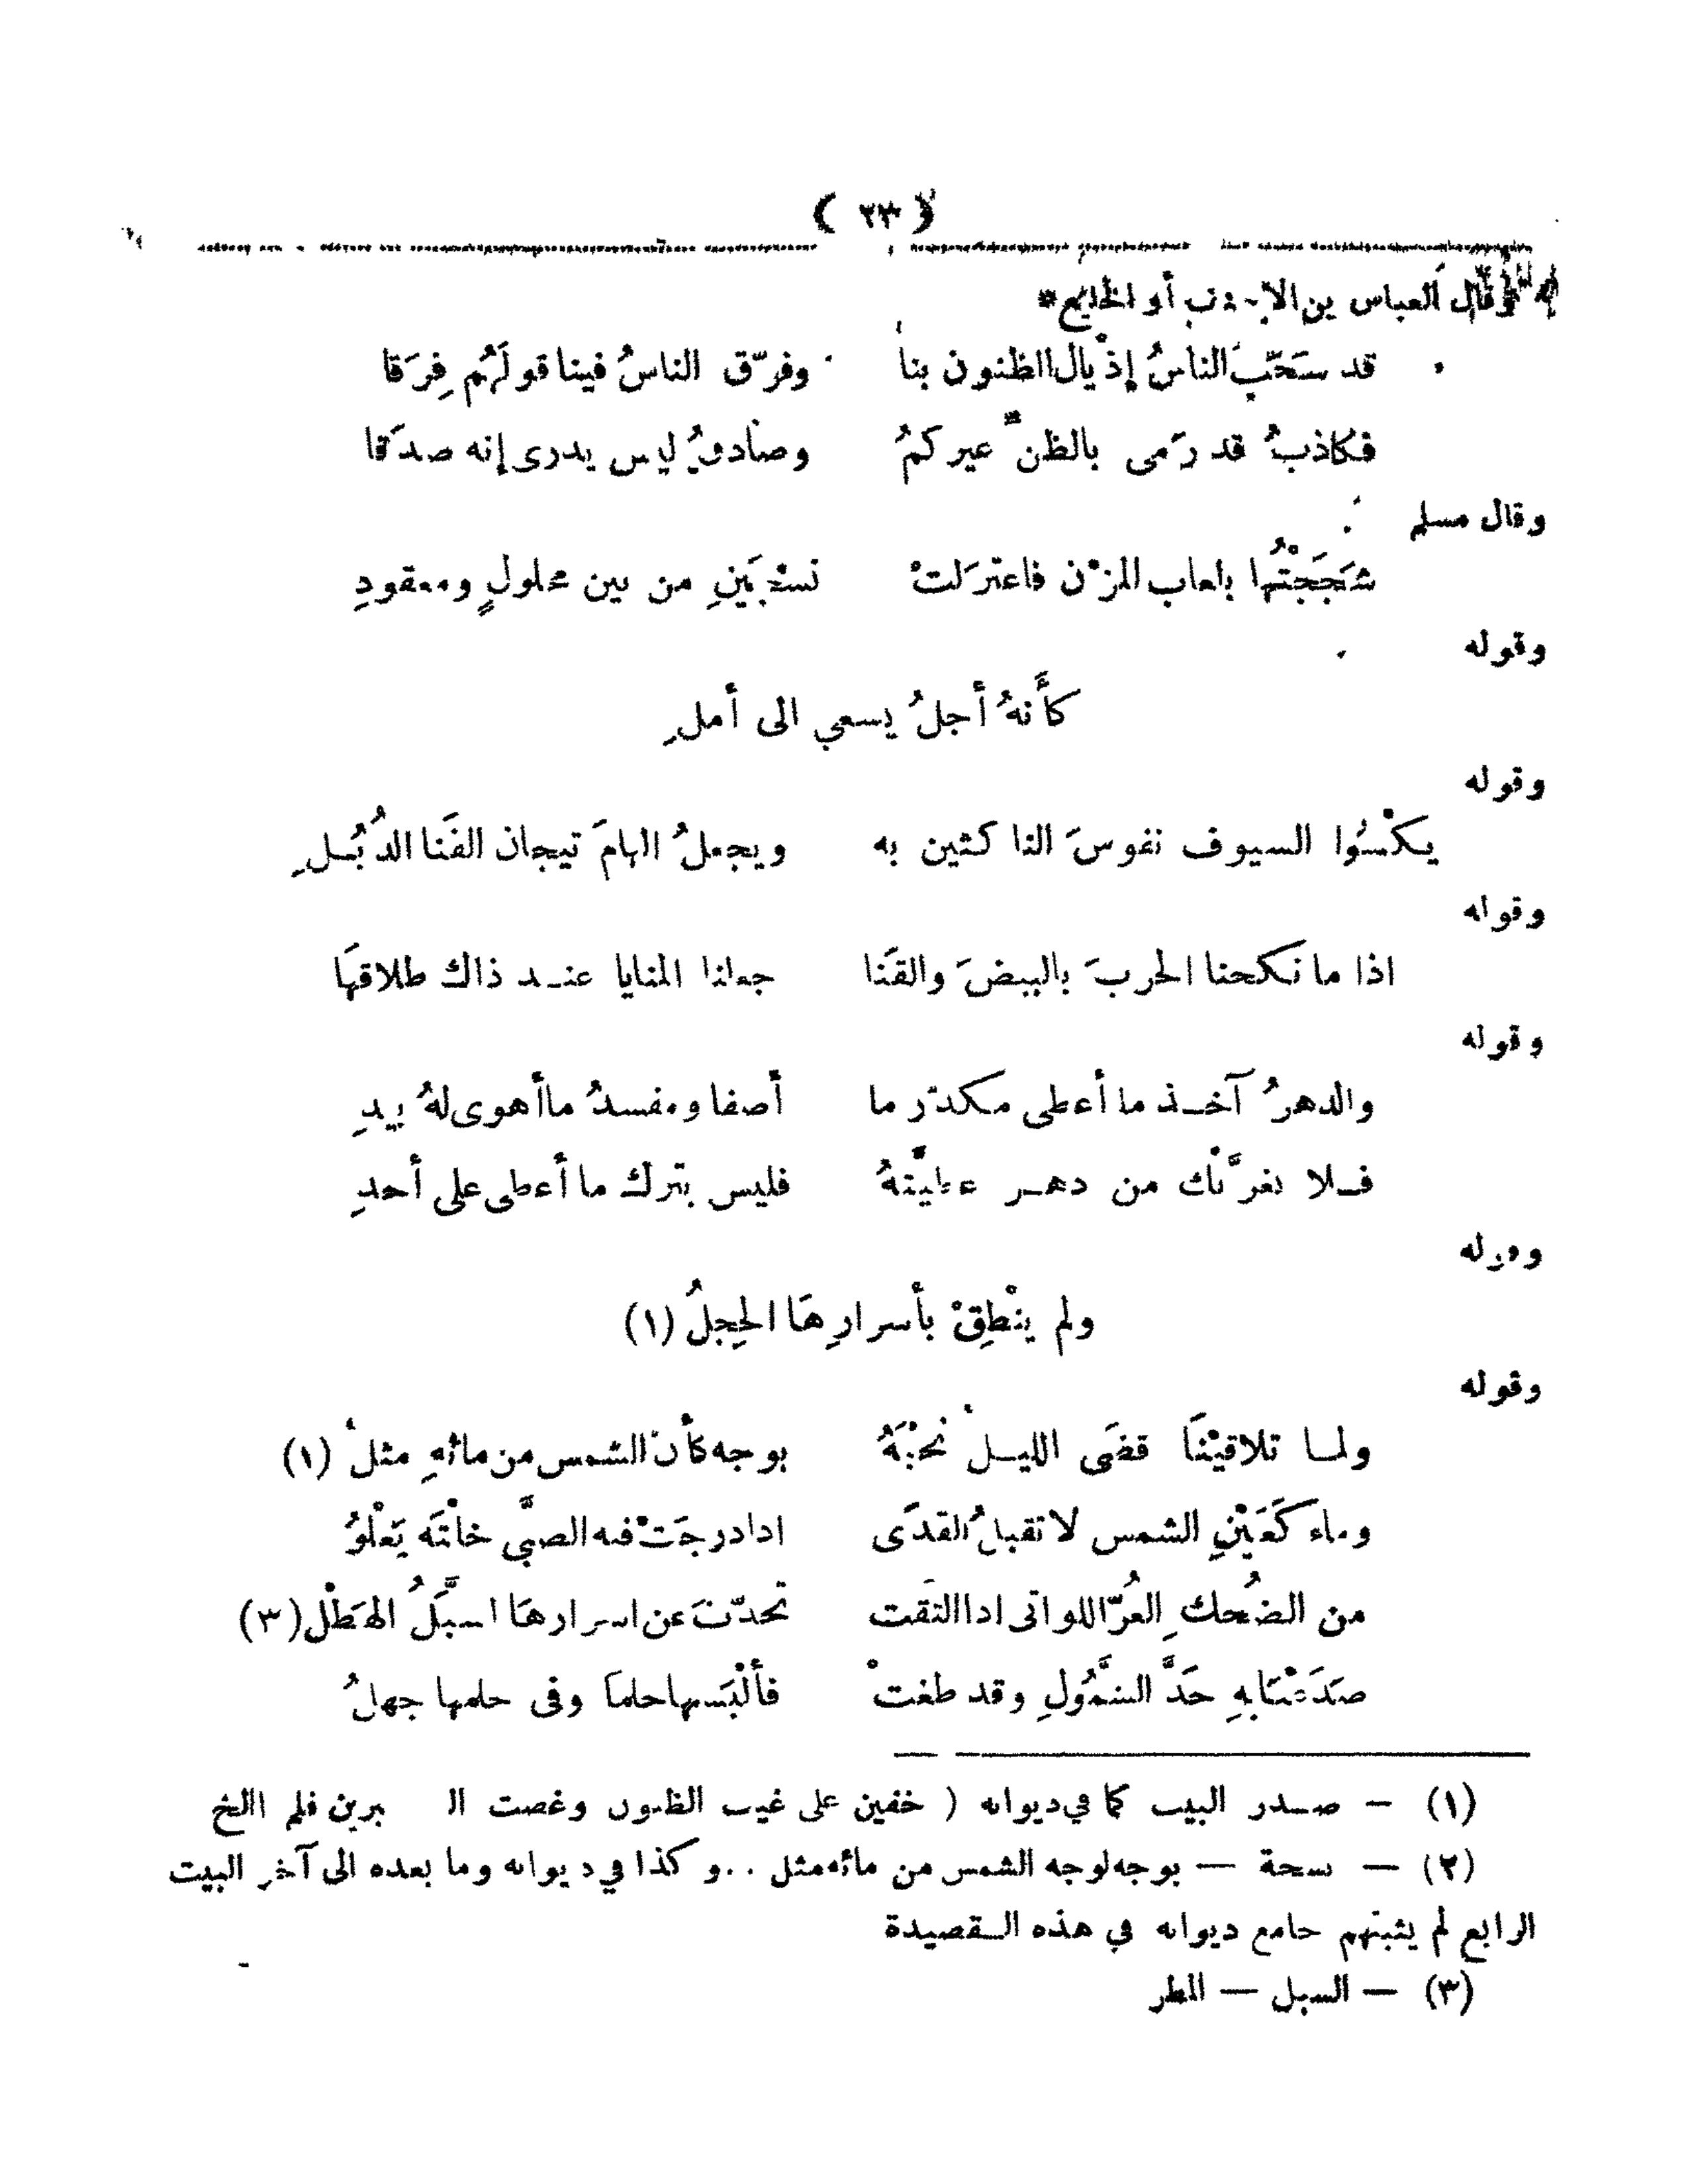 ( ٢٣ )
وقال العباس بن الاحنف أو الخليع*
قد سَحّبَ الناسُ إذْيال الظنون بنا وفرّق الناسُ فينا قولَهُم فِرَقا
فكاذبُ قد رَمى بالظنّ غيركمُ وصادقُ ليس يدرى إنه صدَقا
وقال مسلم
شَجَجَتْهُا بلعاب المزْن فاعتزَلتْ نسْجَينِ من بين محلولٍ ومعقودِ
وقوله
كأَنهُ أجلُ يسعي الى أملِ
وقوله
يكْسُوا السيوف نفوسَ الناكثين به ويجعلُ الهامَ تيجان القَنا الذُبُلِ
وقوله
اذا ما نكحنا الحربَ بالبيضَ والقَنا جعلنا المنايا عند ذاك طلاقهَا
وقوله
والدهرُ آخذ ما أعطى مكدّر ما أصفا ومفسدُ ماأهوى لهُ بيدِ
فلا تغرَّنْك من دهر عطيَّتهُ فليس يترك ما أعطى على أحدِ
وقوله
ولم ينْطِقْ بأسرارِهَا الحِجلُ (١)
وقوله
ولما تلاقيْنَا قضَى الليلْ نحْبَهُ بوجه كأنّ الشمس من مائهِ مثلْ (١)
وماء كَعَيْنِ الشمس لا تقبلُ القذَى اذا درجَتْ فيه الصبَّي خلْتَه يَعْلوُ
من الضُحك العُرّ اللواتى اذا التقت تحدّثَ عن اسرارهَا السبَّلُ الهَطْل (٣)
صَدَعْنَا بهِ حَدَّ الشَّمُولِ وقد طغتْ فألْبَسها حلماَ وفى حلمها جهلُ
(١) — صدر البيت كما في ديوانه ( خفين على غيب الظنون وغصت الـ برين فلم الخ
(٢) — نسحة — بوجه لوجه الشمس من مائه مثل .. وكذا في ديوانه وما بعده الى آخر البيت
الرابع لم يثبتهم جامع ديوانه في هذه القصيدة
(٣) — السبل — المطر